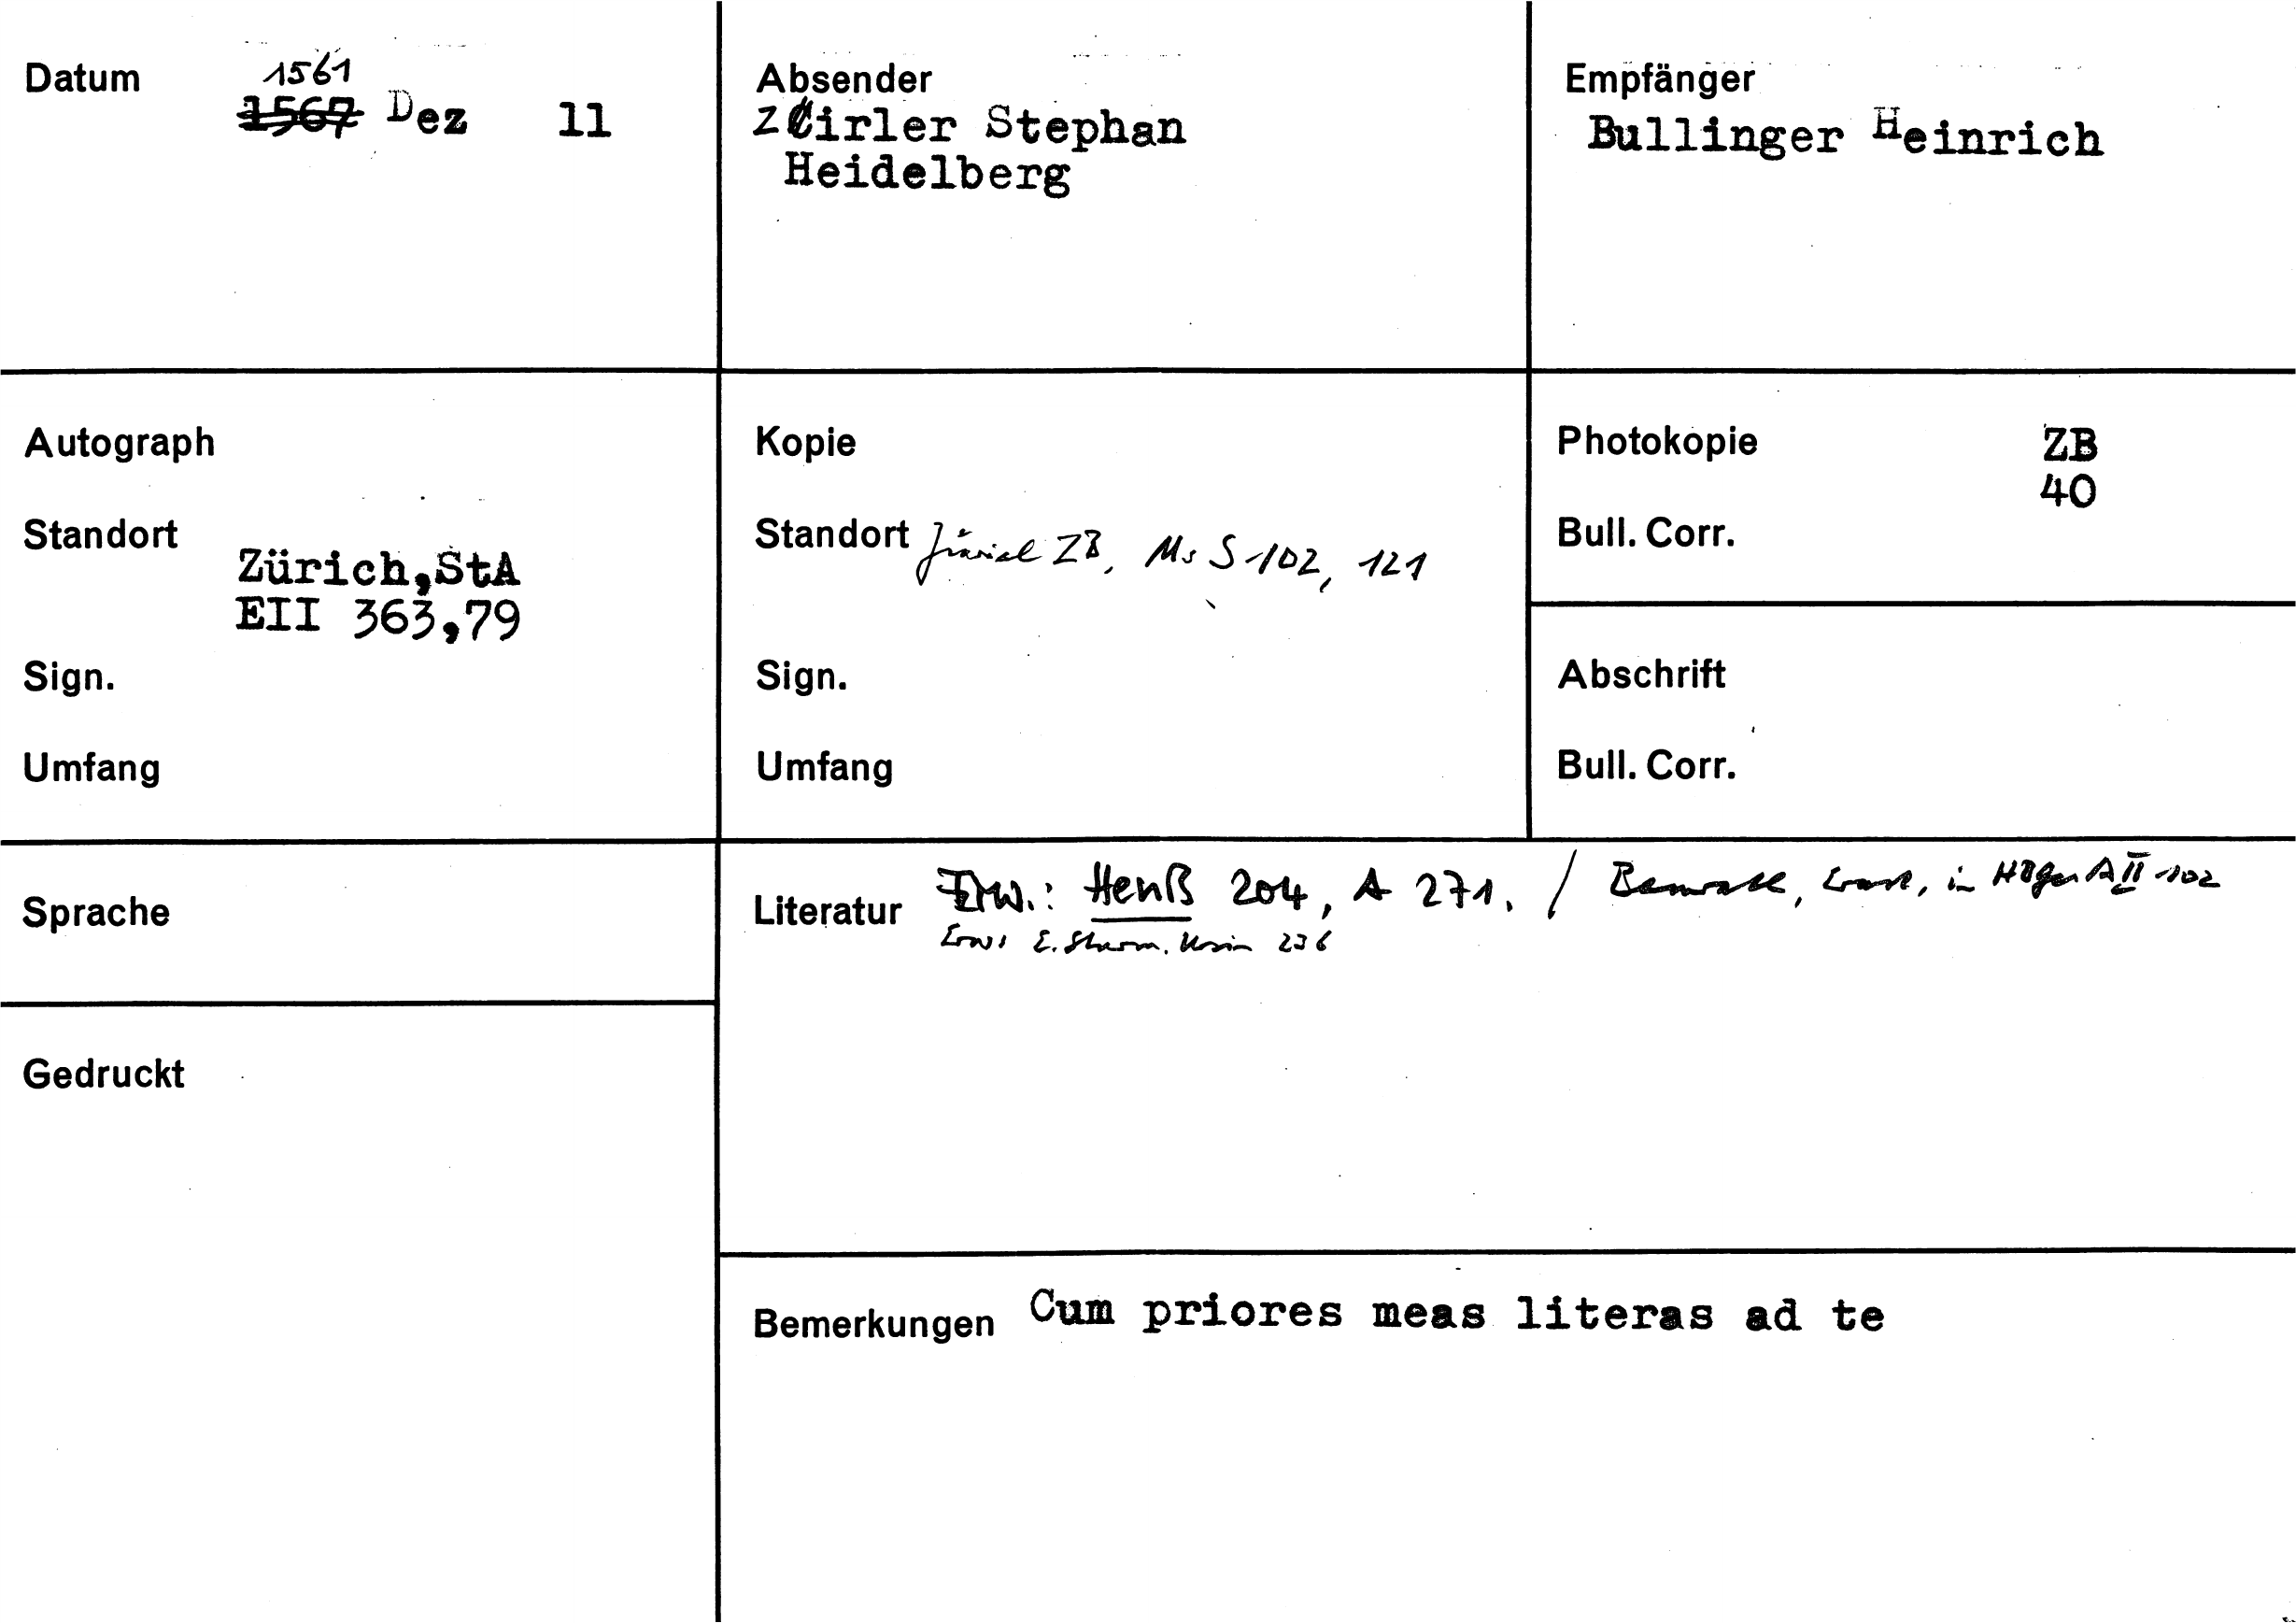 Datum 1561
1567 Dez 11
Absender
ZCirler Stephan
Heidelberg
Empfänger
Bullinger Heinrich
Autograph
Standort
Zürich,StA
EII 363,79
Sign.
Umfang
Kopie
Standort Zürich ZB, Ms S 102, 121
Sign.
Umfang
Photokopie ZB
40
Bull. Corr.
Abschrift
Bull. Corr.
Sprache
Gedruckt
Literatur Erw.: Henß 204, A 271. / in HBGesA II 102
Erw: E. Sturm, Ursin 236
Bemerkungen Cum priores meas literas ad te